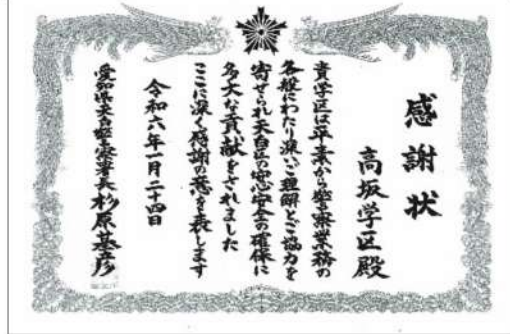 感謝状
高坂学区殿
貴学区は平素から警察業務の
各般にわたり深いご理解とご協力を
寄せられ天白区の安心安全の確保に
多大な貢献をされました
ここに深く感謝の意を表します
令和六年一月二十四日
愛知県天白警察署長杉原基彦